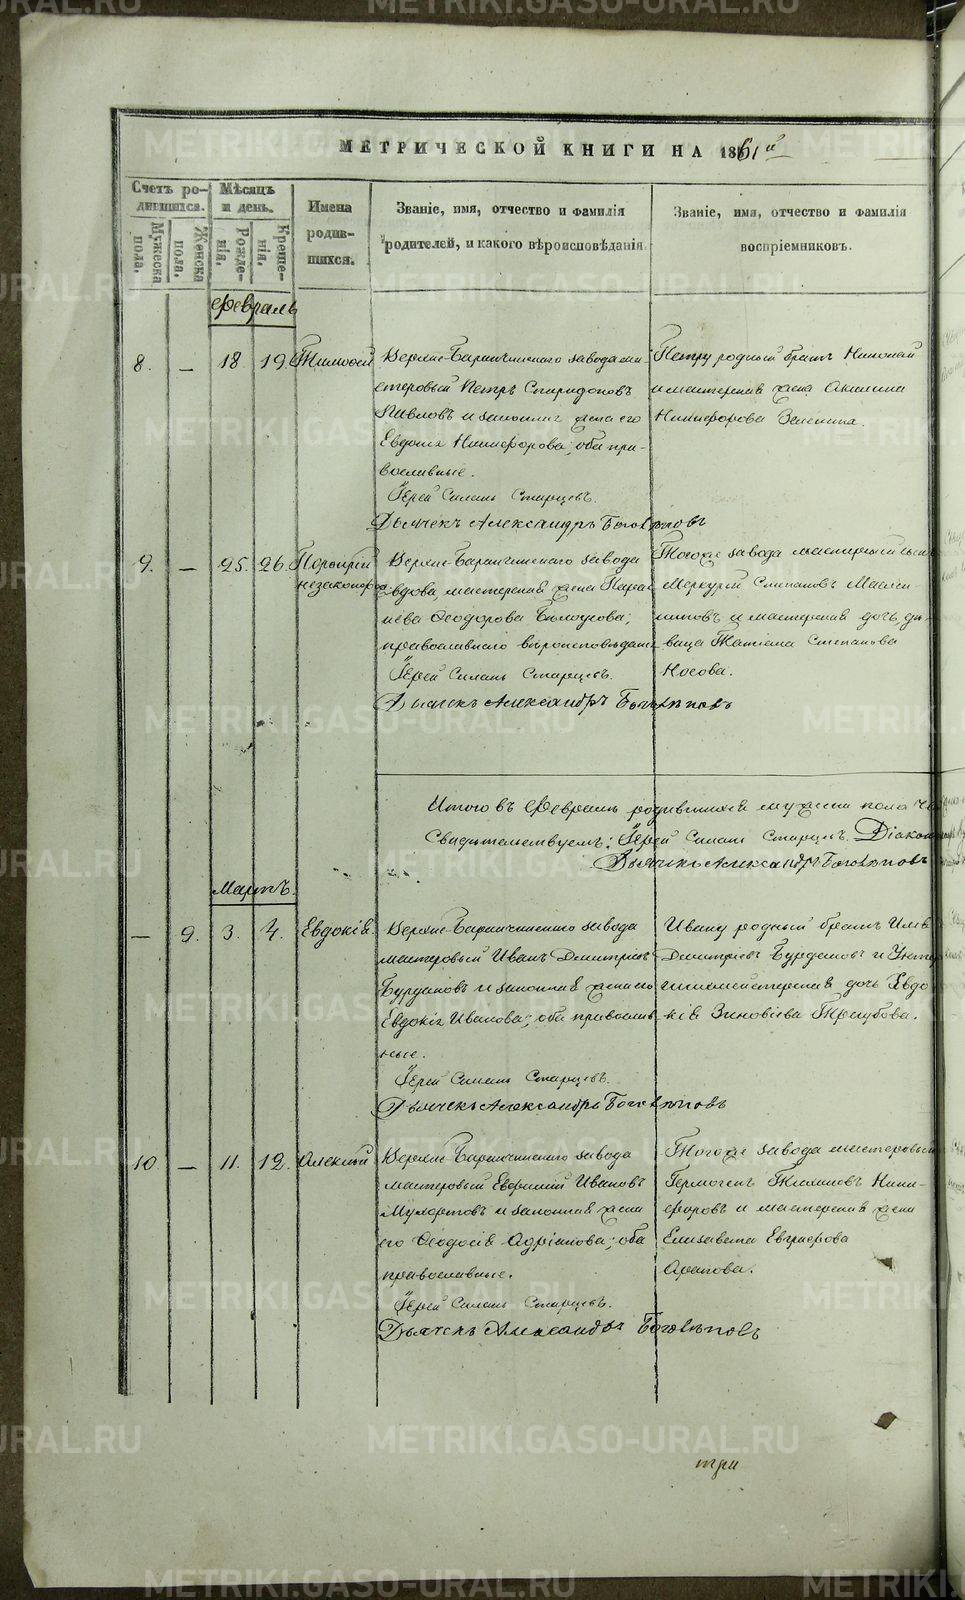 МЕТРИЧЕСКОЙ КНИГИ НА 1861й
Счетъ ро-
дившихся.
Мужеска
пола.
Женска
пола.
Мѣсяцъ
и день.
Рожде-
нія.
Креще-
нія.
Имена
родив-
шихся.
Званіе, имя, отчество и фамилія
родителей, и какого вѣроисповѣданія.
Званіе, имя, отчество и фамилія
воспріемниковъ.
Февраль
8. — 18 19 Тимоѳей
Верхне-Баранчинскаго завода ма-
стеровый Петръ Спиридоновъ
Павловъ и законная жена его
Евдокія Никифорова; оба пра-
вославные.
Іерей Старцевъ.
Дьячекъ Александръ Боголѣповъ
Петру родный братъ Николай
и мастерская жена Акилина
Никифорова Зеленина.
9. — 25. 26. Порфирій
незаконорож
Верхне-Баранчинскаго завода
вдова, мастерская жена
Ѳеодорова
православнаго вѣроисповѣданія
Іерей Старцевъ.
Дьячекъ Александръ Боголѣповъ
Тогоже завода мастерскій сынъ
Меркурій Степановъ
и мастерская дочь, дѣ-
вица Татіана Степанова
Носова.
Итого въ Февралѣ родившихся мужеска пола
Свидѣтельствуемъ: Іерей Старцевъ. Діаконъ
Дьячекъ Александръ Боголѣповъ
Мартъ.
— 9. 3. 4. Евдокія.
Верхне-Баранчинскаго завода
мастеровый Иванъ Дмитріевъ
Бурдаковъ и законная жена его
Евдокія Иванова; оба православ-
ные.
Іерей Старцевъ.
Дьячекъ Александръ Боголѣповъ
Ивану родный братъ
Дмитріевъ Бурдаковъ и Унтер
шихмейстерская дочь Евдо
кія Зиновіева Трегубова.
10. — 11. 12. Алексій
Верхне-Баранчинскаго завода
мастеровый Евфимій Ивановъ
и законная жена
его Ѳеодосія Адріанова; оба
православные.
Іерей Старцевъ.
Дьячекъ Александръ Боголѣповъ
Тогоже завода мастеровый
Гермогенъ Тихановъ Ники-
форовъ и мастерская жена
Елизавета Евграфова
Арапова.
три
METRIKI.GASO-URAL.RU